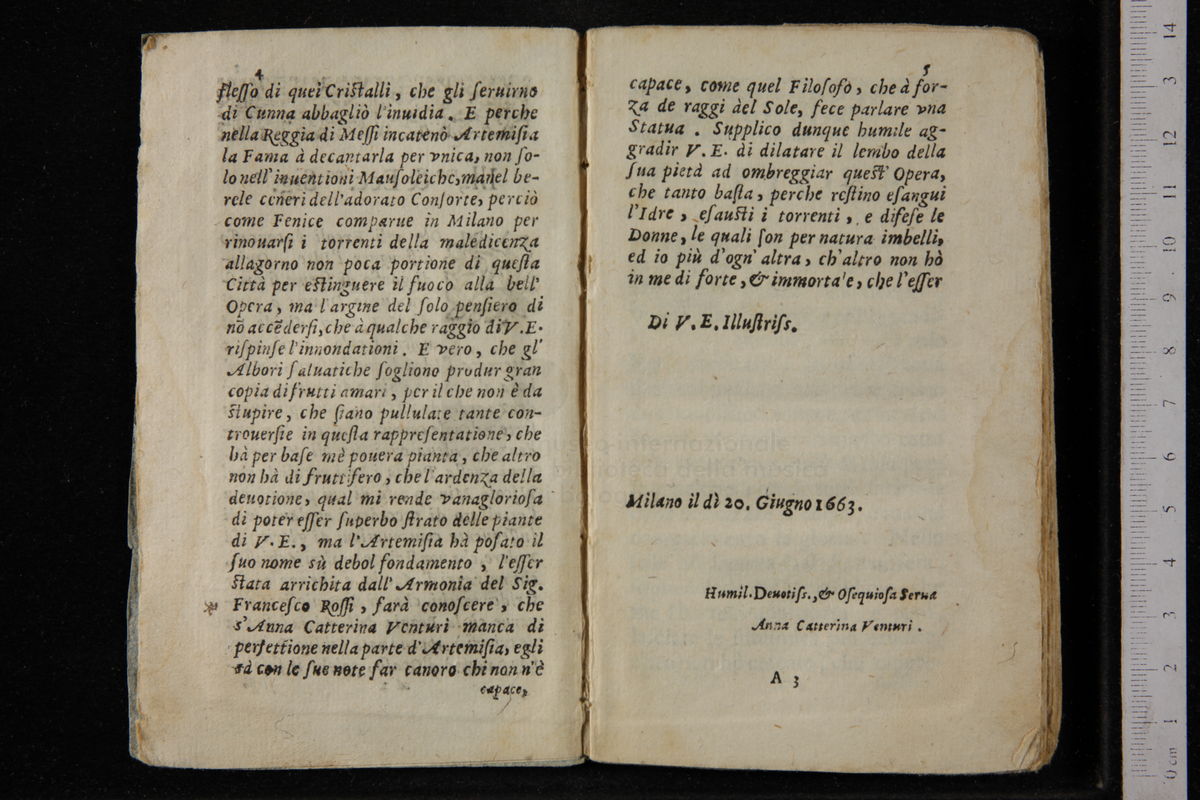 4
flesso di quei Cristalli, che gli seruirno
di Cunna abbagliò l'inuidia. E perche
nella Reggia di Messi incatenò Artemisia
la Fama à decantarla per vnica, non so-
lo nell'inuentioni Mausoleiche, mà nel be-
rele ceneri dell'adorato Consorte, perciò
come Fenice comparue in Milano per
rinouarsi i torrenti della maledicenza
allagorno non poca portione di questa
Città per estinguere il fuoco alla bell'
Opera, ma l'argine del solo pensiero di
nō accēdersi, che à qualche raggio di V.E.
rispinse l'innondationi. E vero, che gl'
Albori saluatiche sogliono produr gran
copia di frutti amari, per il che non è da
stupire, che siano pullulate tante con-
trouersie in questa rappresentatione, che
hà per base mè pouera pianta, che altro
non hà di fruttifero, che l'ardenza della
deuotione, qual mi rende vanagloriosa
di poter esser superbo strato delle piante
di V.E., ma l'Artemisia hà posato il
suo nome sù debol fondamento, l'esser
stata arrichita dall'Armonia del Sig.
Francesco Rossi, farà conoscere, che
s'Anna Catterina Venturi manca di
perfettione nella parte d'Artemisia, egli
sà con le sue note far canoro chi non n'è
capace,
5
capace, come quel Filosofo, che à for-
za de raggi del Sole, fece parlare vna
Statua. Supplico dunque humile ag-
gradir V.E. di dilatare il lembo della
sua pietà ad ombreggiar quest'Opera,
che tanto basta, perche restino esangui
l'Idre, esausti i torrenti, e difese le
Donne, le quali son per natura imbelli,
ed io più d'ogn'altra, ch'altro non hò
in me di forte, & immorta'e, che l'esser
Di V.E. Illustriss.
Milano il dì 20. Giugno 1663.
Humil. Deuotiss., & Osequiosa Serua
Anna Catterina Venturi.
A 3
museo internazionale
biblioteca della musica
0 cm 1 2 3 4 5 6 7 8 9 10 11 12 13 14